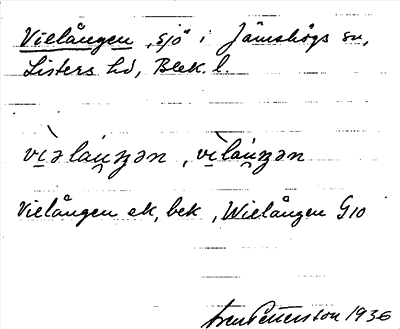 Vielången, sjö i Jämshögs sn,
Listers hd, Blek. l.
vìəlaúŋən, vìlaúŋən
Vielången ek, bek, Wielången G10
Pettersson 1936